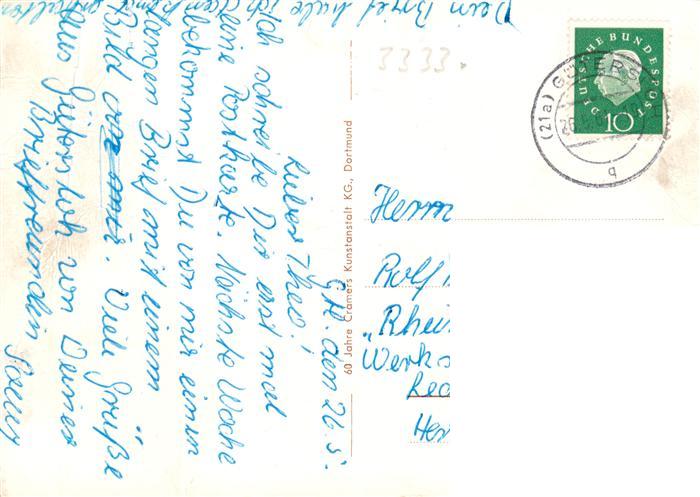 Dein Brief habe ich dankend erhalten
Gt. den 26. 5.
Lieber Theo!
Ich schreibe Dir erst mal
eine Postkarte. Nächste Woche
bekommst Du von mir einen
langen Brief mit einem
Bild von mir. Viele Grüße
aus Gütersloh von Deiner
Brieffreundin
60 Jahre Cramers Kunstanstalt KG., Dortmund
3333.
DEUTSCHE BUNDESPOST
10
(21a) GÜTERSL
26.5.
q
Herrn
Rolf
„Rhei
Werks
Led
Her